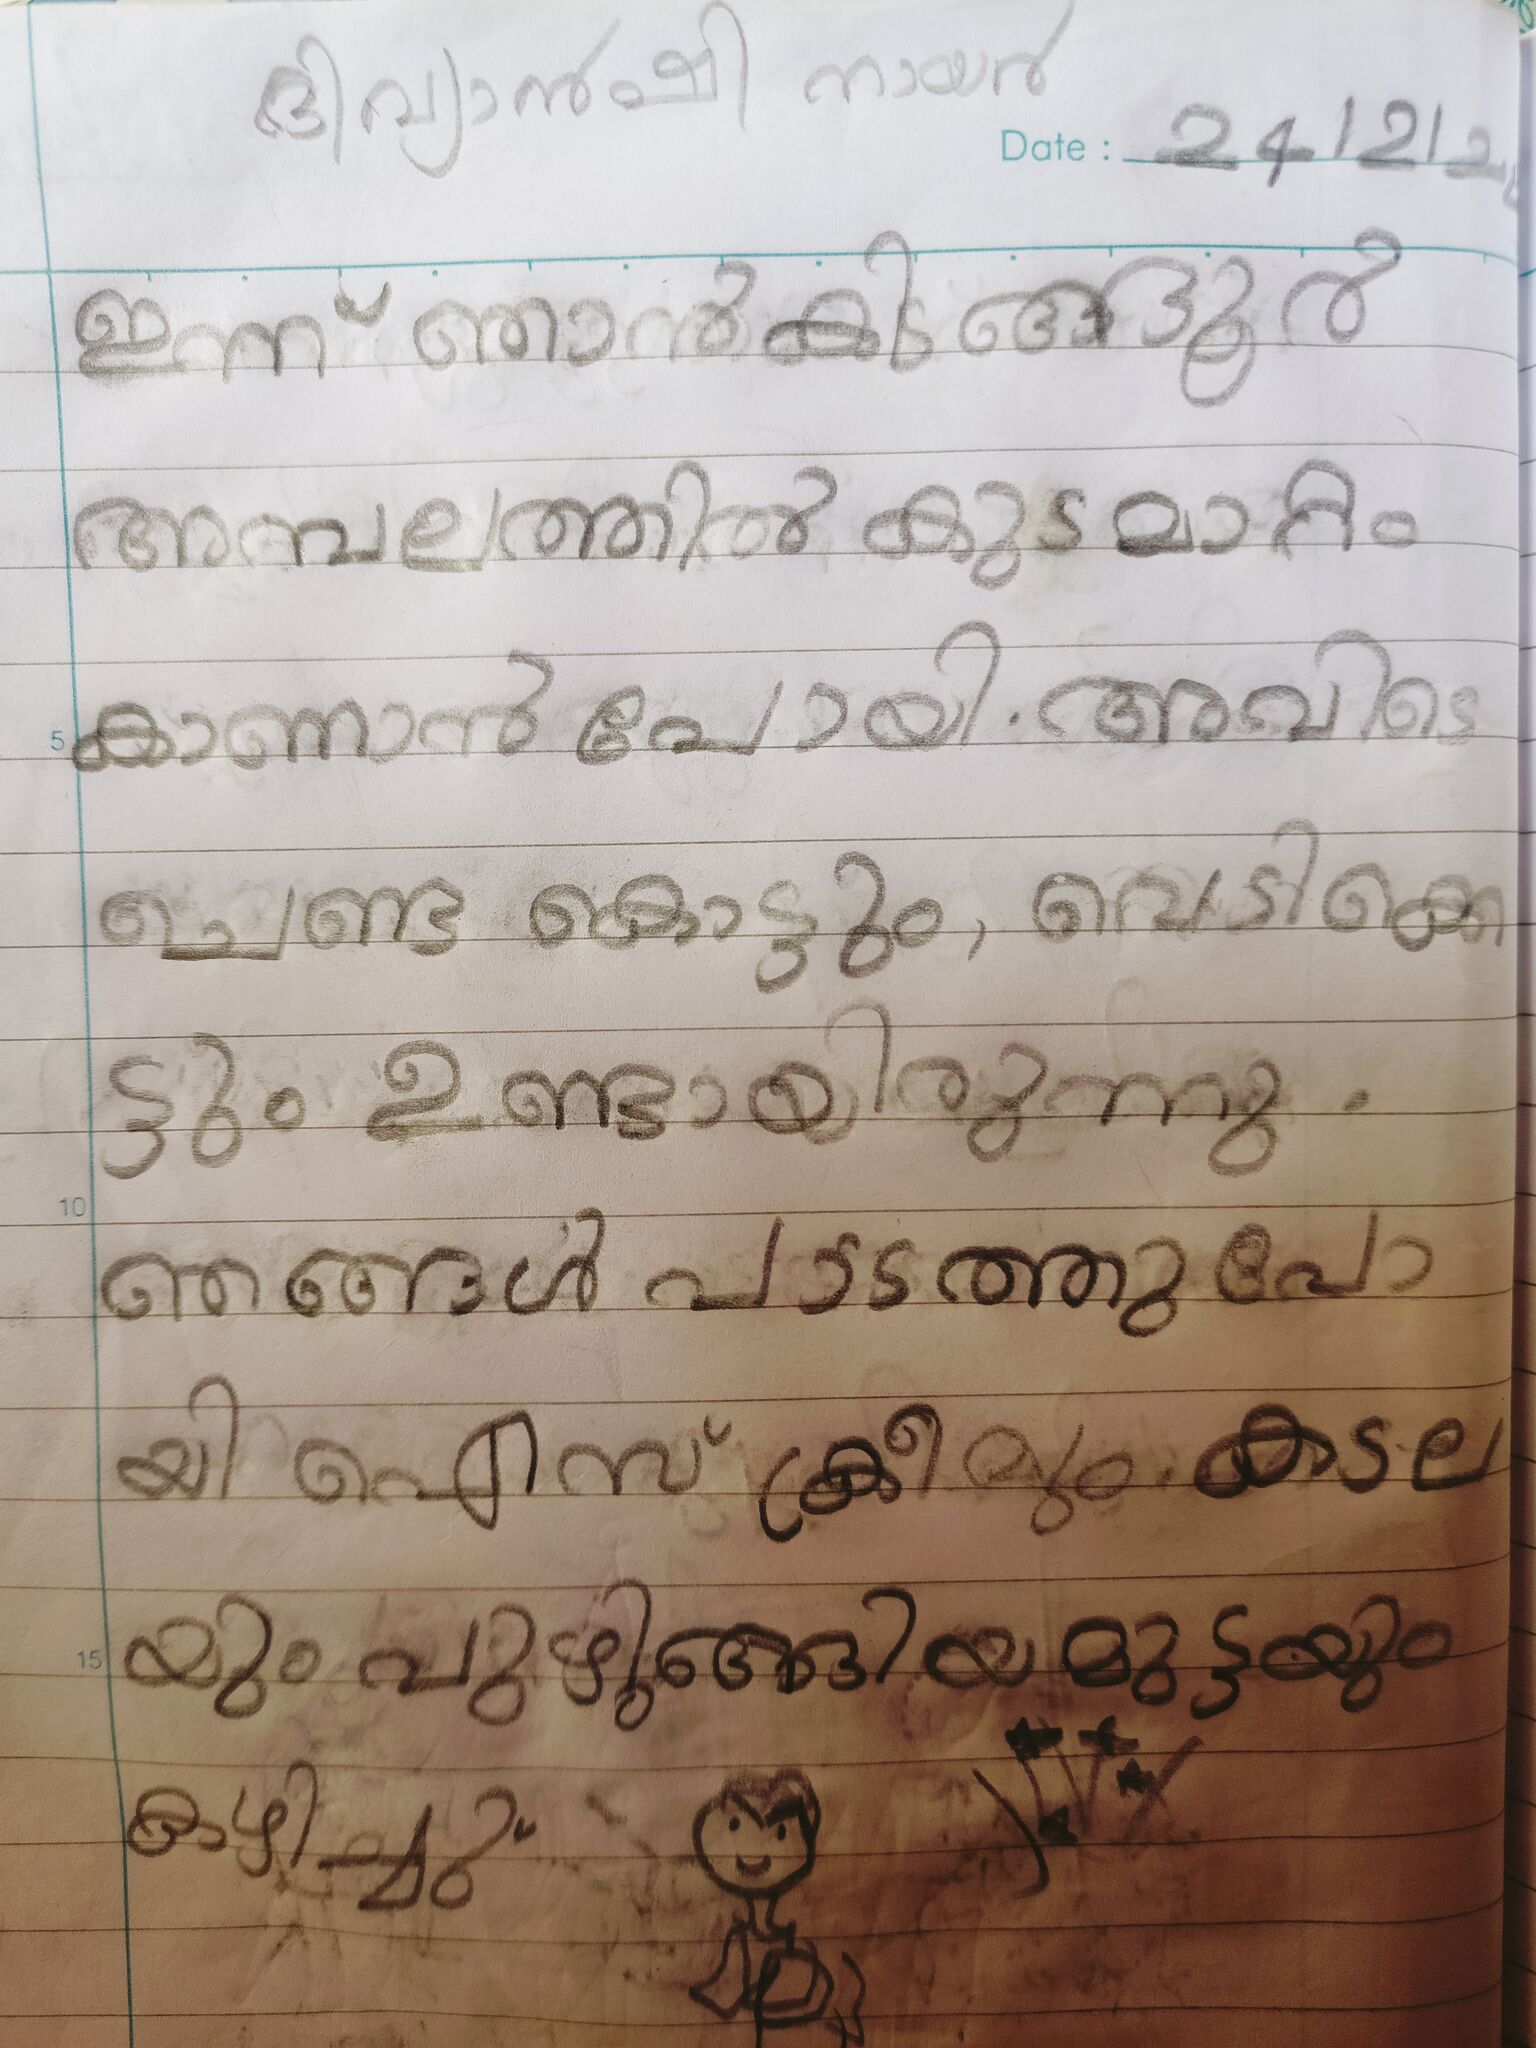 ദിവ്യാൻഷി നായർ
Date : 24/2/2
ഇന്ന് ഞാൻ കിടങ്ങൂർ
അമ്പലത്തിൽ കുടമാറ്റം
കാണാൻ പോയി. അവിടെ
ചെണ്ട കൊട്ടും, വെടിക്കെ
ട്ടും ഉണ്ടായിരുന്നു.
5
ഞങ്ങൾ പാടത്തു പോ
10
യി ഐസ് ക്രീമും കടല
യും പുഴുങ്ങിയ മുട്ടയും
15
കഴിച്ചു.